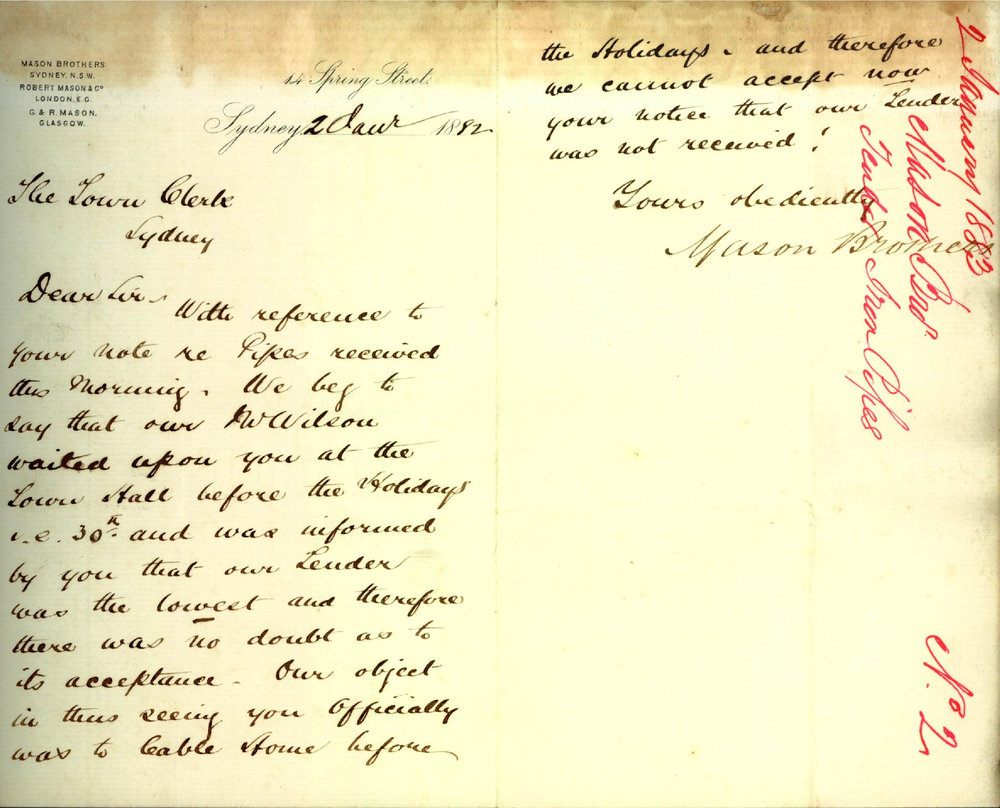 MASON BROTHERS
SYDNEY, N.S.W.
ROBERT MASON & Co
LONDON, E.C.
G. & R. MASON,
GLASGOW.
14 Spring Street.
Sydney 2 Jany 1882
The Town Clerk
Sydney
Dear Sir -
With reference to
your note re Pipes received
this Morning. We beg to
say that our Mr Wilson
waited upon you at the
Town Hall before the Holidays
i.e. 30th and was informed
by you that our Tender
was the lowest and therefore
there was no doubt as to
its acceptance - Our object
in thus seeing you Officially
was to Cable Home before
the Holidays - and therefore
we cannot accept now
your notice that our Tender
was not received!
Yours obediently
Mason Brothers
2 January 1883
Mason Bros
Tender Iron Pipes
No 2